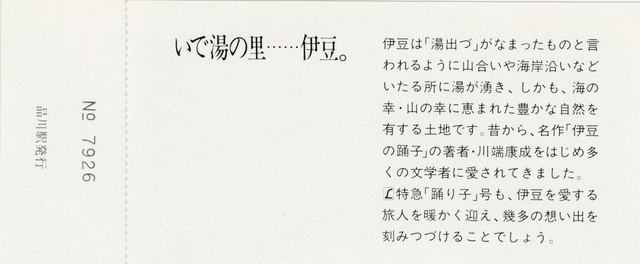 いで湯の里……伊豆。
伊豆は「湯出づ」がなまったものと言
われるように山合いや海岸沿いなど
いたる所に湯が湧き、しかも、海の
幸・山の幸に恵まれた豊かな自然を
有する土地です。昔から、名作「伊豆
の踊子」の著者・川端康成をはじめ多
くの文学者に愛されてきました。
L特急「踊り子」号も、伊豆を愛する
旅人を暖かく迎え、幾多の想い出を
刻みつづけることでしょう。
№ 7926
品川駅発行